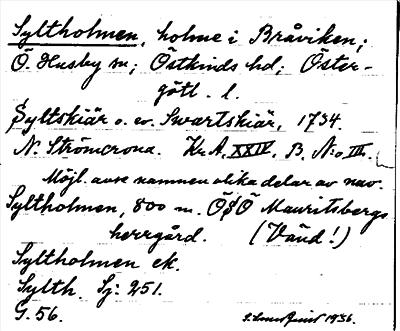 Syltholmen, holme i Bråviken;
Ö. Husby sn; Östkinds hd; Öster-
götl. l.
Syltskiär o. ev. Swartskiär, 1734.
N. Strömcrona. Kr.A. XXIV. B. No III.
Möjl. avse namnen olika delar av nav.
Syltholmen, 800 m. ÖSÖ Mauritsbergs
herrgård. (Vänd!)
Syltholmen ek.
Sylth. Sj: 251.
G. 56.
1936.